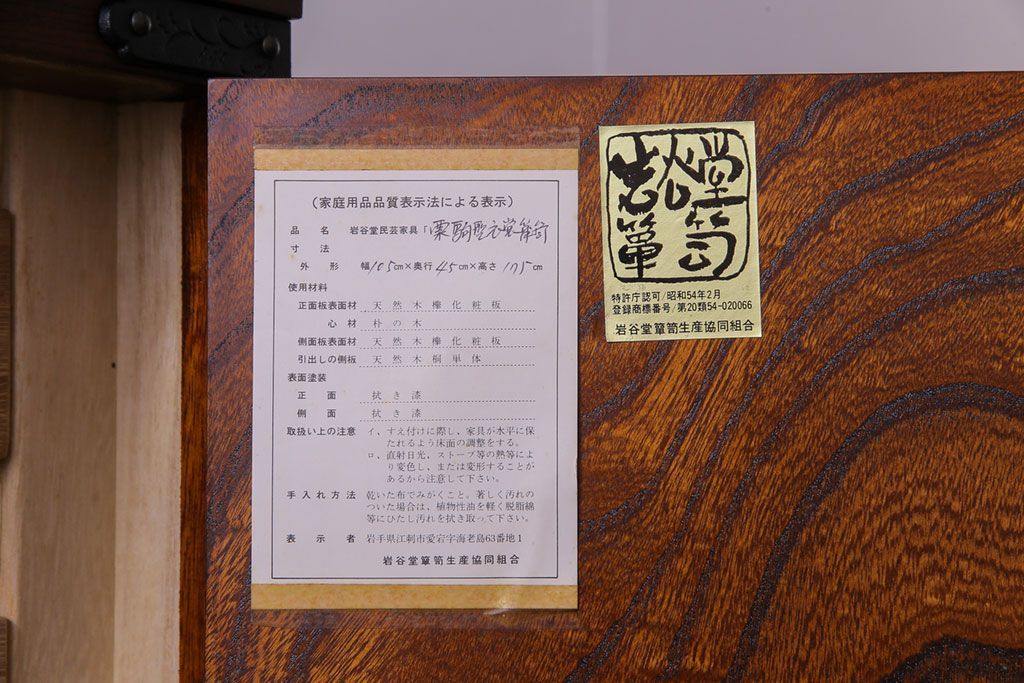 (家庭用品品質表示法による表示)
品 名 岩谷堂民芸家具「栗駒型衣裳箪笥
寸 法
外 形 幅105cm×奥行45cm×高さ175cm
使用材料
正面板表面材 天然木欅化粧板
心 材 朴の木
側面板表面材 天然木欅化粧板
引出しの側板 天然木桐単体
表面塗装
正 面 拭き漆
側 面 拭き漆
取扱い上の注意 イ、すえ付けに際し、家具が水平に保
たれるよう床面の調整をする。
ロ、直射日光、ストーブ等の熱等によ
り変色し、または変形することが
あるから注意して下さい。
手入れ方法 乾いた布でみがくこと。著しく汚れの
ついた場合は、植物性油を軽く脱脂綿
等にひたし汚れを拭き取って下さい。
表 示 者 岩手県江刺市愛宕字海老島63番地1
岩谷堂簞笥生産協同組合
岩谷堂
簞笥
特許庁認可/昭和54年2月
登録商標番号/第20類54-020066
岩谷堂簞笥生産協同組合